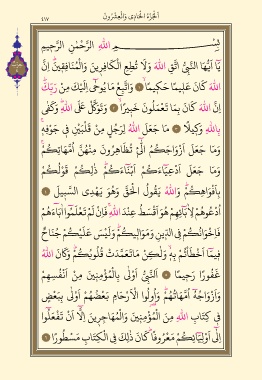 ٤١٧
اَلْجُزْءُ الْحَادِى وَالْعِشْرُونَ
بِسْــــــمِ اللهِ الرَّحْمٰنِ الرَّحِيمِ
يَٓا اَيُّهَا النَّبِىُّ اتَّقِ اللهَ وَلَا تُطِعِ الْكَافِرِينَ وَالْمُنَافِقِينَۜ اِنَّ
اللهَ كَانَ عَلِيمًا حَكِيمًا ۝ وَاتَّبِعْ مَا يُوحٰٓى اِلَيْكَ مِنْ رَبِّكَۜ
اِنَّ اللهَ كَانَ بِمَا تَعْمَلُونَ خَبِيرًا ۝ وَتَوَكَّلْ عَلَى اللهِۜ وَكَفٰى
بِاللهِ وَكِيلًا ۝ مَا جَعَلَ اللهُ لِرَجُلٍ مِنْ قَلْبَيْنِ فِى جَوْفِهِۚ
وَمَا جَعَلَ اَزْوَاجَكُمُ الّٰٓـِٔى تُظَاهِرُونَ مِنْهُنَّ اُمَّهَاتِكُمْۚ
وَمَا جَعَلَ اَدْعِيَٓاءَكُمْ اَبْنَٓاءَكُمْۜ ذٰلِكُمْ قَوْلُكُمْ
بِاَفْوَاهِكُمْۜ وَاللهُ يَقُولُ الْحَقَّ وَهُوَ يَهْدِى السَّبِيلَ ۝
اُدْعُوهُمْ لِاٰبَٓائِهِمْ هُوَ اَقْسَطُ عِنْدَ اللهِۚ فَاِنْ لَمْ تَعْلَمُٓوا اٰبَٓاءَهُمْ
فَاِخْوَانُكُمْ فِى الدِّينِ وَمَوَالِيكُمْۜ وَلَيْسَ عَلَيْكُمْ جُنَاحٌ
فِيمَٓا اَخْطَأْتُمْ بِهِۙ وَلٰكِنْ مَا تَعَمَّدَتْ قُلُوبُكُمْۜ وَكَانَ اللهُ
غَفُورًا رَحِيمًا ۝ اَلنَّبِىُّ اَوْلٰى بِالْمُؤْمِنِينَ مِنْ اَنْفُسِهِمْ
وَاَزْوَاجُهُٓ اُمَّهَاتُهُمْۜ وَاُو۬لُوا الْاَرْحَامِ بَعْضُهُمْ اَوْلٰى بِبَعْضٍ
فِى كِتَابِ اللهِ مِنَ الْمُؤْمِنِينَ وَالْمُهَاجِرِينَ اِلَّٓا اَنْ تَفْعَلُٓوا
اِلٰٓى اَوْلِيَٓائِكُمْ مَعْرُوفًاۜ كَانَ ذٰلِكَ فِى الْكِتَابِ مَسْطُورًا ۝